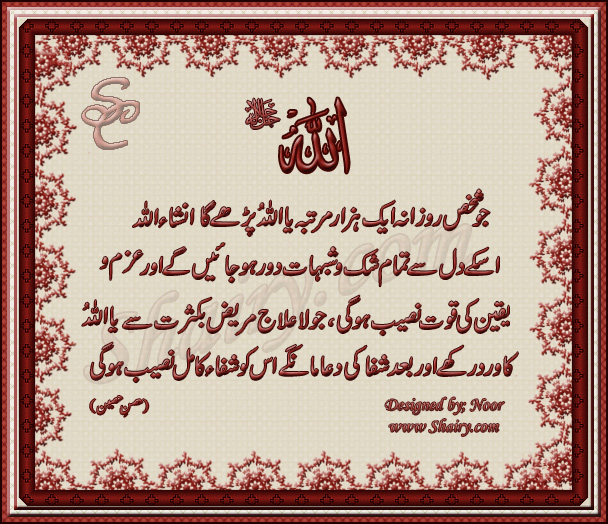 اللہ جل جلالہ
جو شخص روزانہ ایک ہزار مرتبہ یا اللہُ پڑھے گا انشاء اللہ
اسکے دل سے تمام شک و شبہات دور ہو جائیں گے اور عزم و
یقین کی قوت نصیب ہو گی ، جو لا علاج مریض بکثرت سے یا اللہُ
کا ورد رکھے اور بعد شفا کی دعا مانگے اس کو شفاء کامل نصیب ہو گی
(حصن حصین)
Designed by; Noor
www.Shairy.com
Shairy.com